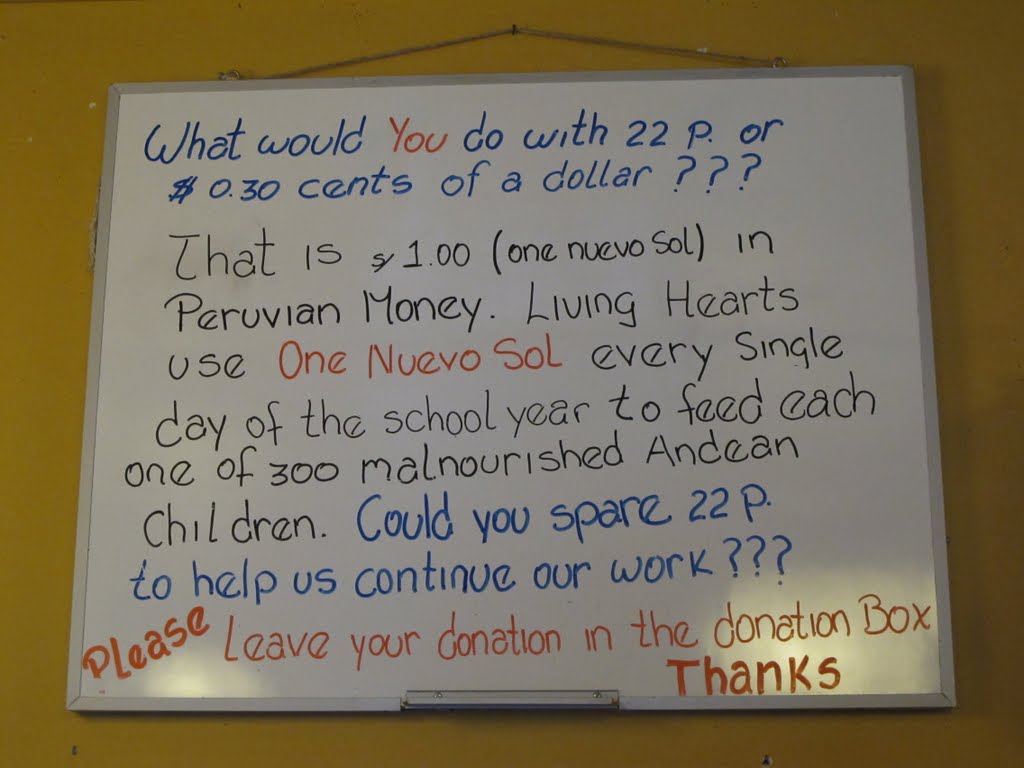 What would You do with 22 p. or
$ 0.30 cents of a dollar ???
That is s/ 1.00 (one nuevo Sol) in
Peruvian Money. Living Hearts
use One Nuevo Sol every Single
day of the school year to feed each
one of 300 malnourished Andean
Children. Could you spare 22 p.
to help us continue our work???
Please Leave your donation in the donation Box
Thanks